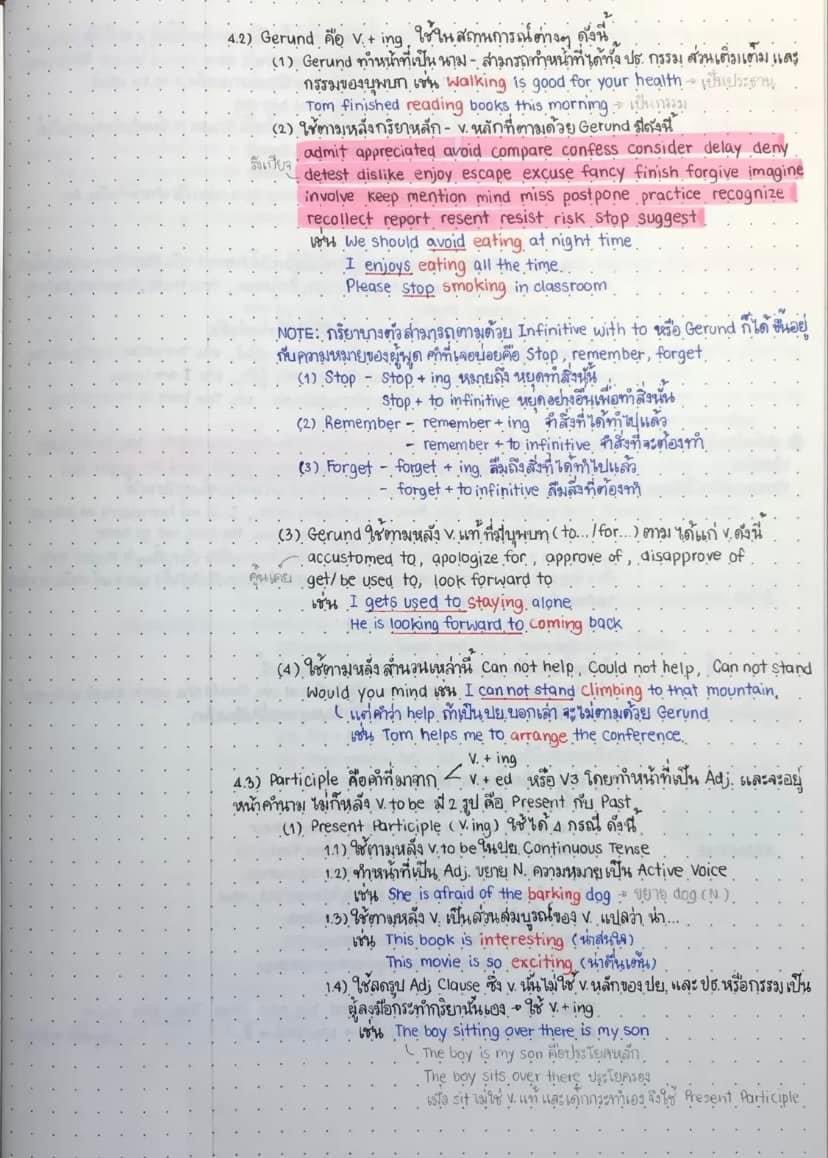 4.2) Gerund คือ V. + ing ใช้ในสถานการณ์ต่างๆ ดังนี้
(1) Gerund ทำหน้าที่เป็นนาม - สามารถทำหน้าที่ได้ทั้ง ปธ. กรรม ส่วนเติมเต็ม และ
กรรมของบุพบท เช่น Walking is good for your health → เป็นประธาน
Tom finished reading books this morning → เป็นกรรม
(2) ใช้ตามหลังกริยาหลัก - V. หลักที่ตามด้วย Gerund มีดังนี้
admit appreciated avoid compare confess consider delay deny
รังเกียจ detest dislike enjoy escape excuse fancy finish forgive imagine
involve keep mention mind miss postpone practice recognize
recollect report resent resist risk stop suggest
เช่น We should avoid eating at night time
I enjoys eating all the time.
Please stop smoking in classroom
NOTE: กริยาบางตัวสามารถตามด้วย Infinitive with to หรือ Gerund ก็ได้ ขึ้นอยู่
กับความหมายของผู้พูด คำที่เจอบ่อยคือ Stop, remember, forget
(1) Stop - Stop + ing หมายถึง หยุดทำสิ่งนั้น
Stop + to infinitive หยุดอย่างอื่นเพื่อทำสิ่งนั้น
(2) Remember - remember + ing จำสิ่งที่ได้ทำไปแล้ว
- remember + to infinitive จำสิ่งที่จะต้องทำ
(3) Forget - forget + ing ลืมถึงสิ่งที่ได้ทำไปแล้ว
- forget + to infinitive ลืมสิ่งที่ต้องทำ
(3) Gerund ใช้ตามหลัง V. แท้ ที่มีบุพบท (to.../for...) ตาม ได้แก่ V. ดังนี้
accustomed to, apologize for, approve of, disapprove of
คุ้นเคย get/be used to, look forward to
เช่น I gets used to staying alone
He is looking forward to coming back
(4) ใช้ตามหลังสำนวนเหล่านี้ Can not help, Could not help, Can not stand
Would you mind เช่น I can not stand climbing to that mountain.
แต่คำว่า help ถ้าเป็นปย.บอกเล่า จะไม่ตามด้วย Gerund
เช่น Tom helps me to arrange the conference.
V. + ing
4.3) Participle คือคำที่มาจาก < V. + ed หรือ V3 โดยทำหน้าที่เป็น Adj. และจะอยู่
หน้าคำนาม ไม่ก็หลัง V. to be มี 2 รูป คือ Present กับ Past
(1) Present Participle (V. ing) ใช้ได้ 4 กรณี ดังนี้
1.1) ใช้ตามหลัง V. to be ในปย. Continuous Tense
1.2) ทำหน้าที่เป็น Adj. ขยาย N. ความหมายเป็น Active Voice
เช่น She is afraid of the barking dog → ขยาย dog (N.)
1.3) ใช้ตามหลัง V. เป็นส่วนสมบูรณ์ของ V. แปลว่า น่า...
เช่น This book is interesting (น่าสนใจ)
This movie is so exciting (น่าตื่นเต้น)
1.4) ใช้ลดรูป Adj Clause ซึ่ง V. นั้นไม่ใช่ V. หลักของปย. และ ปธ. หรือกรรม เป็น
ผู้ลงมือกระทำกริยานั้นเอง → ใช้ V. + ing
เช่น The boy sitting over there is my son
The boy is my son คือประโยคหลัก
The boy sits over there ประโยครอง
เมื่อ sit ไม่ใช่ V. แท้ และเด็กกระทำเอง จึงใช้ Present Participle